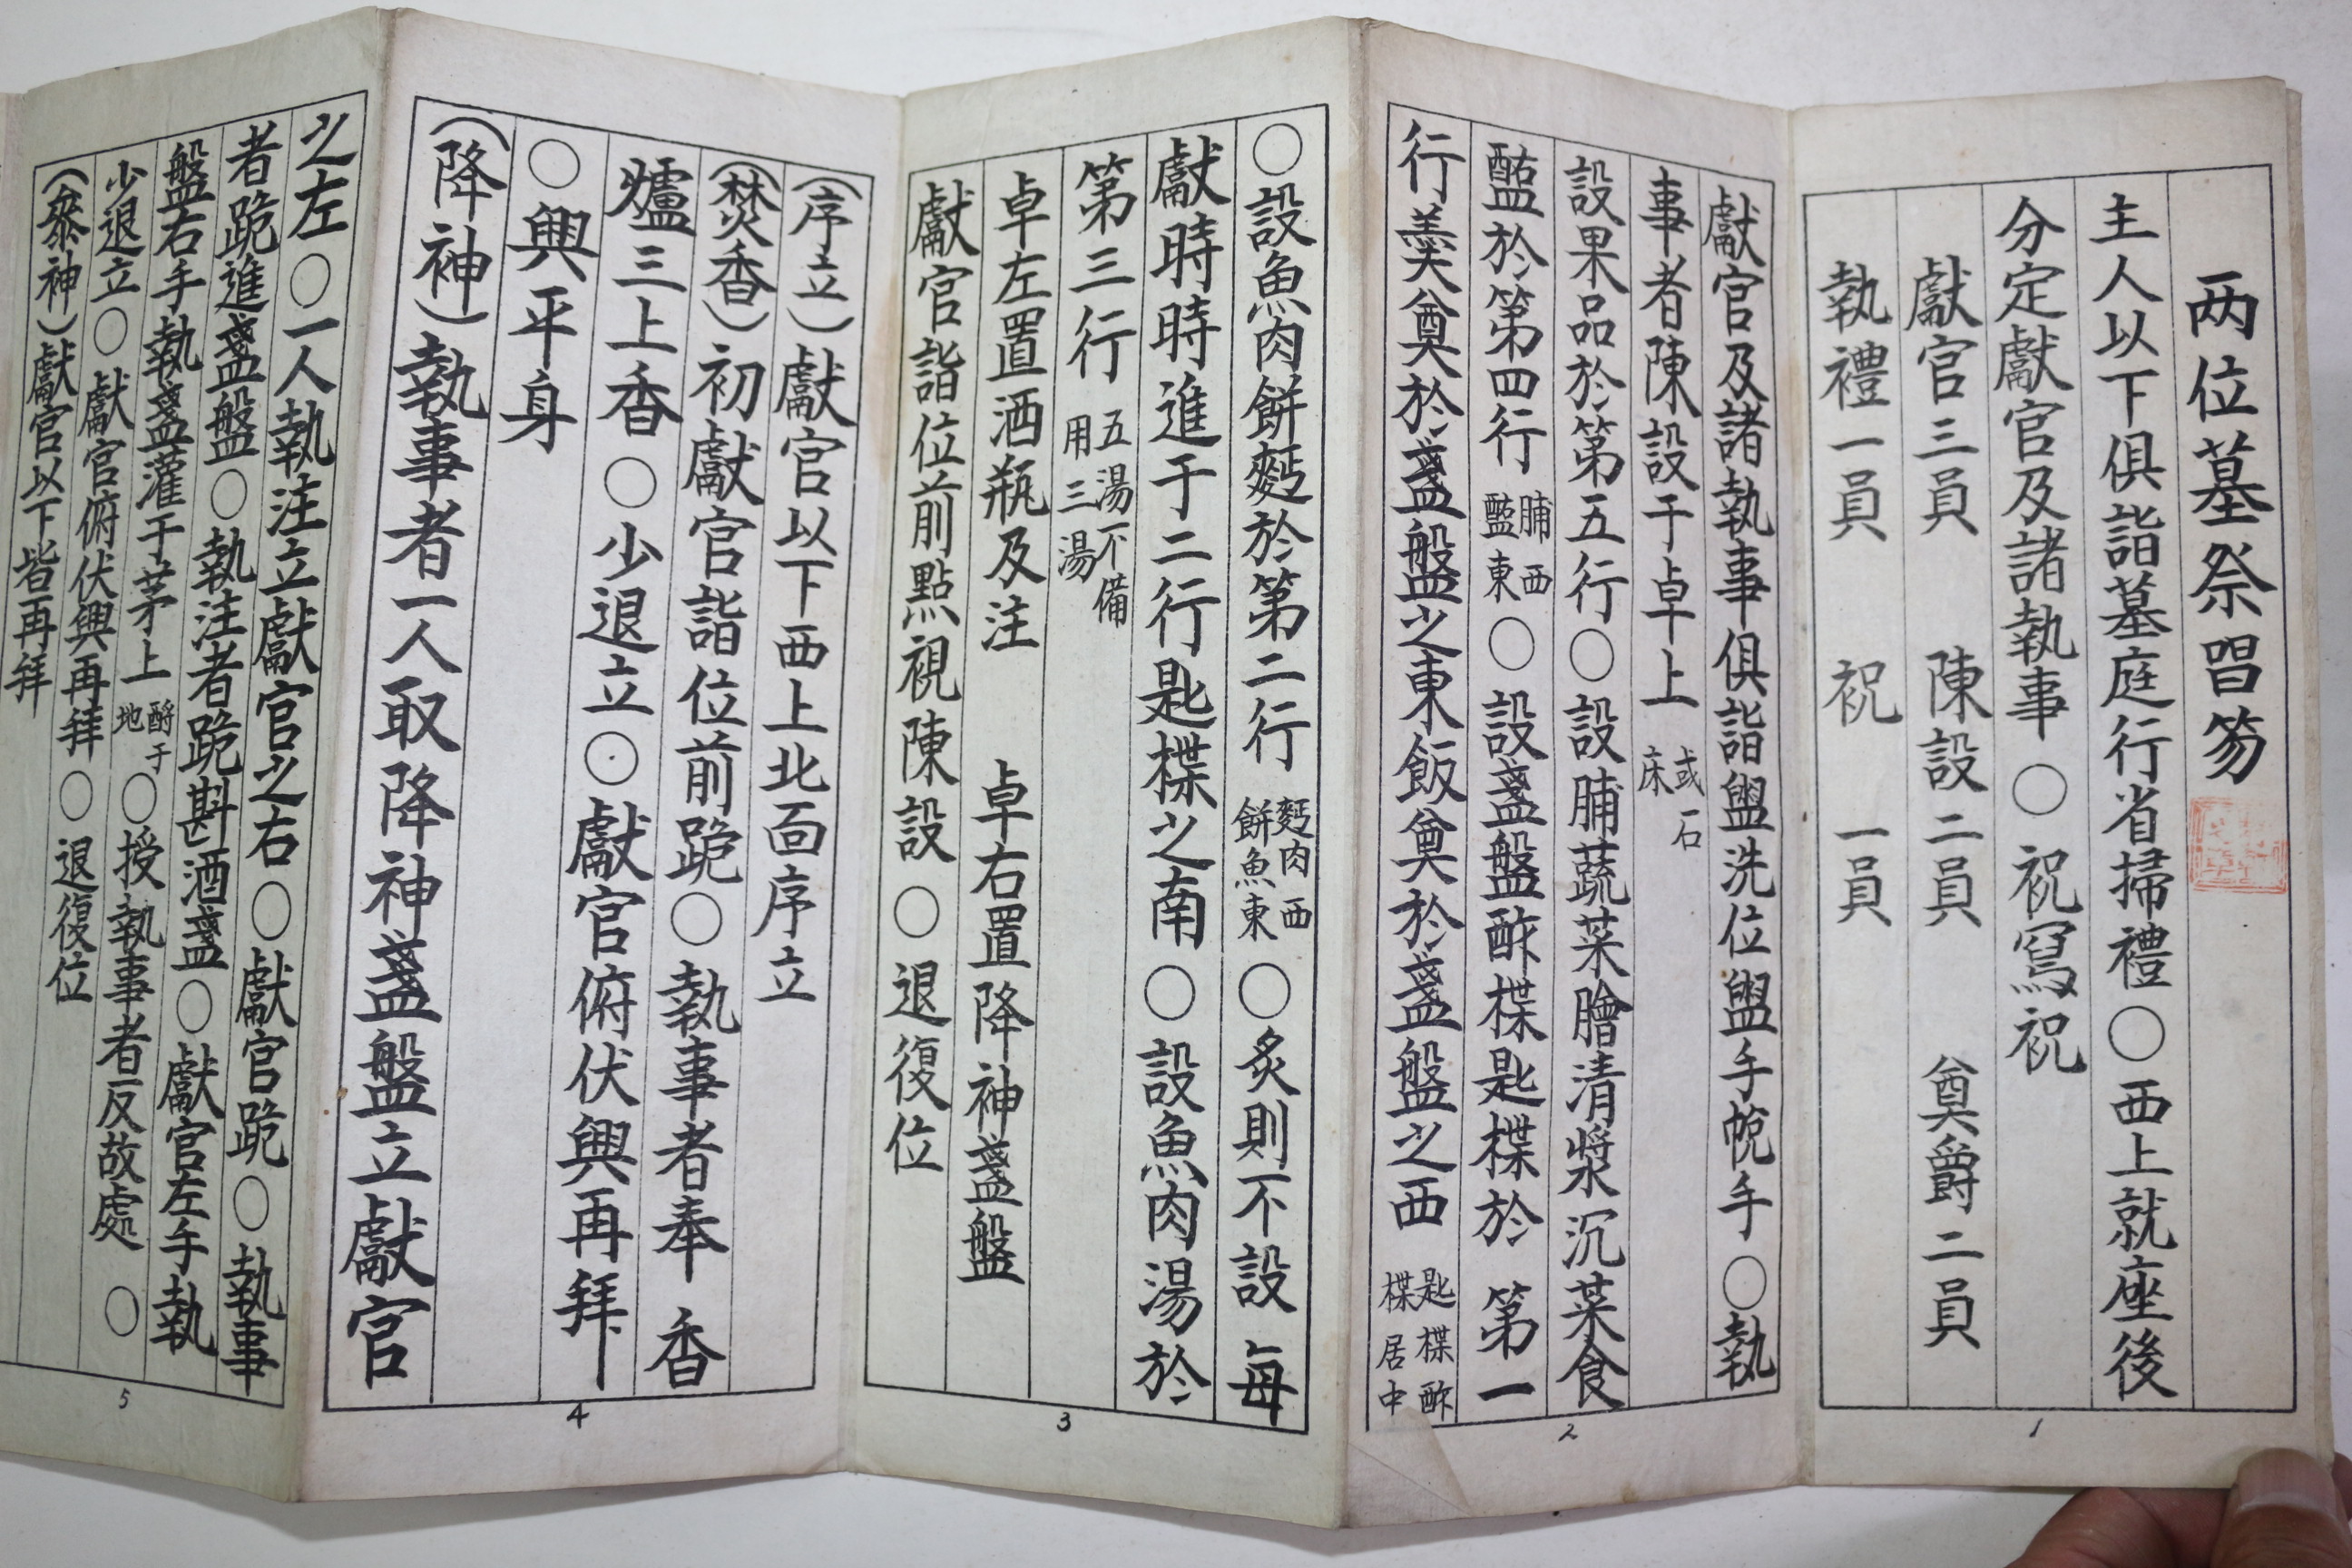 两位墓祭唱笏
主人以下俱詣墓庭行省掃禮○西上就座後
分定獻官及諸執事○祝寫祝
獻官三員 陳設二員 奠爵二員
執禮一員 祝 一員
1
獻官及諸執事俱詣盥洗位盥手帨手○執
事者陳設于卓上 或石床
設果品於第五行○設脯蔬菜膾清漿沉菜食
醢於第四行 脯西醢東 ○設盞盤酢楪匙楪於 第一
行羹奠於盞盤之東飯奠於盞盤之西 匙楪酢楪居中
2
○設魚肉餠麪於第二行 麪肉西餠魚東 ○炙則不設 每
獻時時進于二行匙楪之南○設魚肉湯於
第三行 五湯不備用三湯
卓左置酒甁及注 卓右置降神盞盤
獻官詣位前點視陳設○退復位
3
(序立)獻官以下西上北面序立
(焚香)初獻官詣位前跪○執事者奉 香
爐三上香○少退立○獻官俯伏興再拜
○興平身
(降神)執事者一人取降神盞盤立獻官
4
之左○一人執注立獻官之右○獻官跪○執事
者跪進盞盤○執注者跪斟酒盞○獻官左手執
盤右手執盞灌于茅上 酹于地 ○授執事者反故處 ○
少退立○獻官俯伏興再拜○退復位
(叅神)獻官以下皆再拜
5